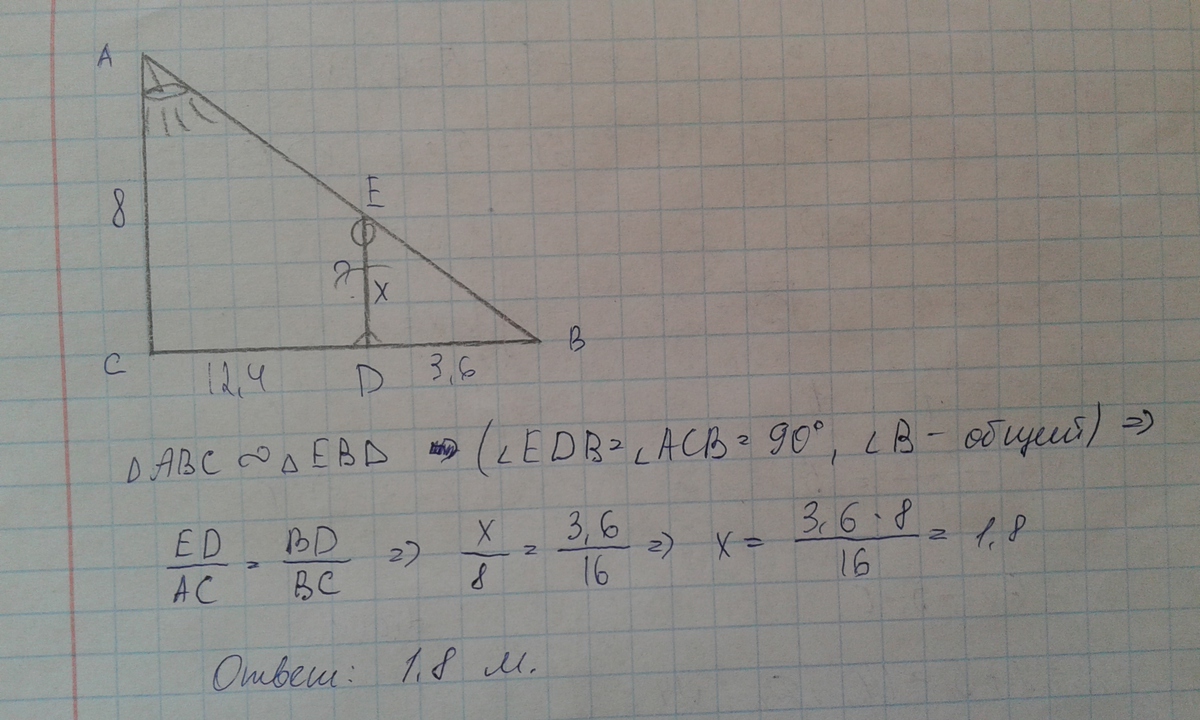 A
E
8
? x
C 12,4 D 3,6 B
△ABC ∾ △EBD ⇒ (∠EDB = ∠ACB = 90°, ∠B – общий) ⇒
ED/AC = BD/BC ⇒ x/8 = 3,6/16 ⇒ x = 3,6 · 8/16 = 1,8
Ответ: 1,8 м.